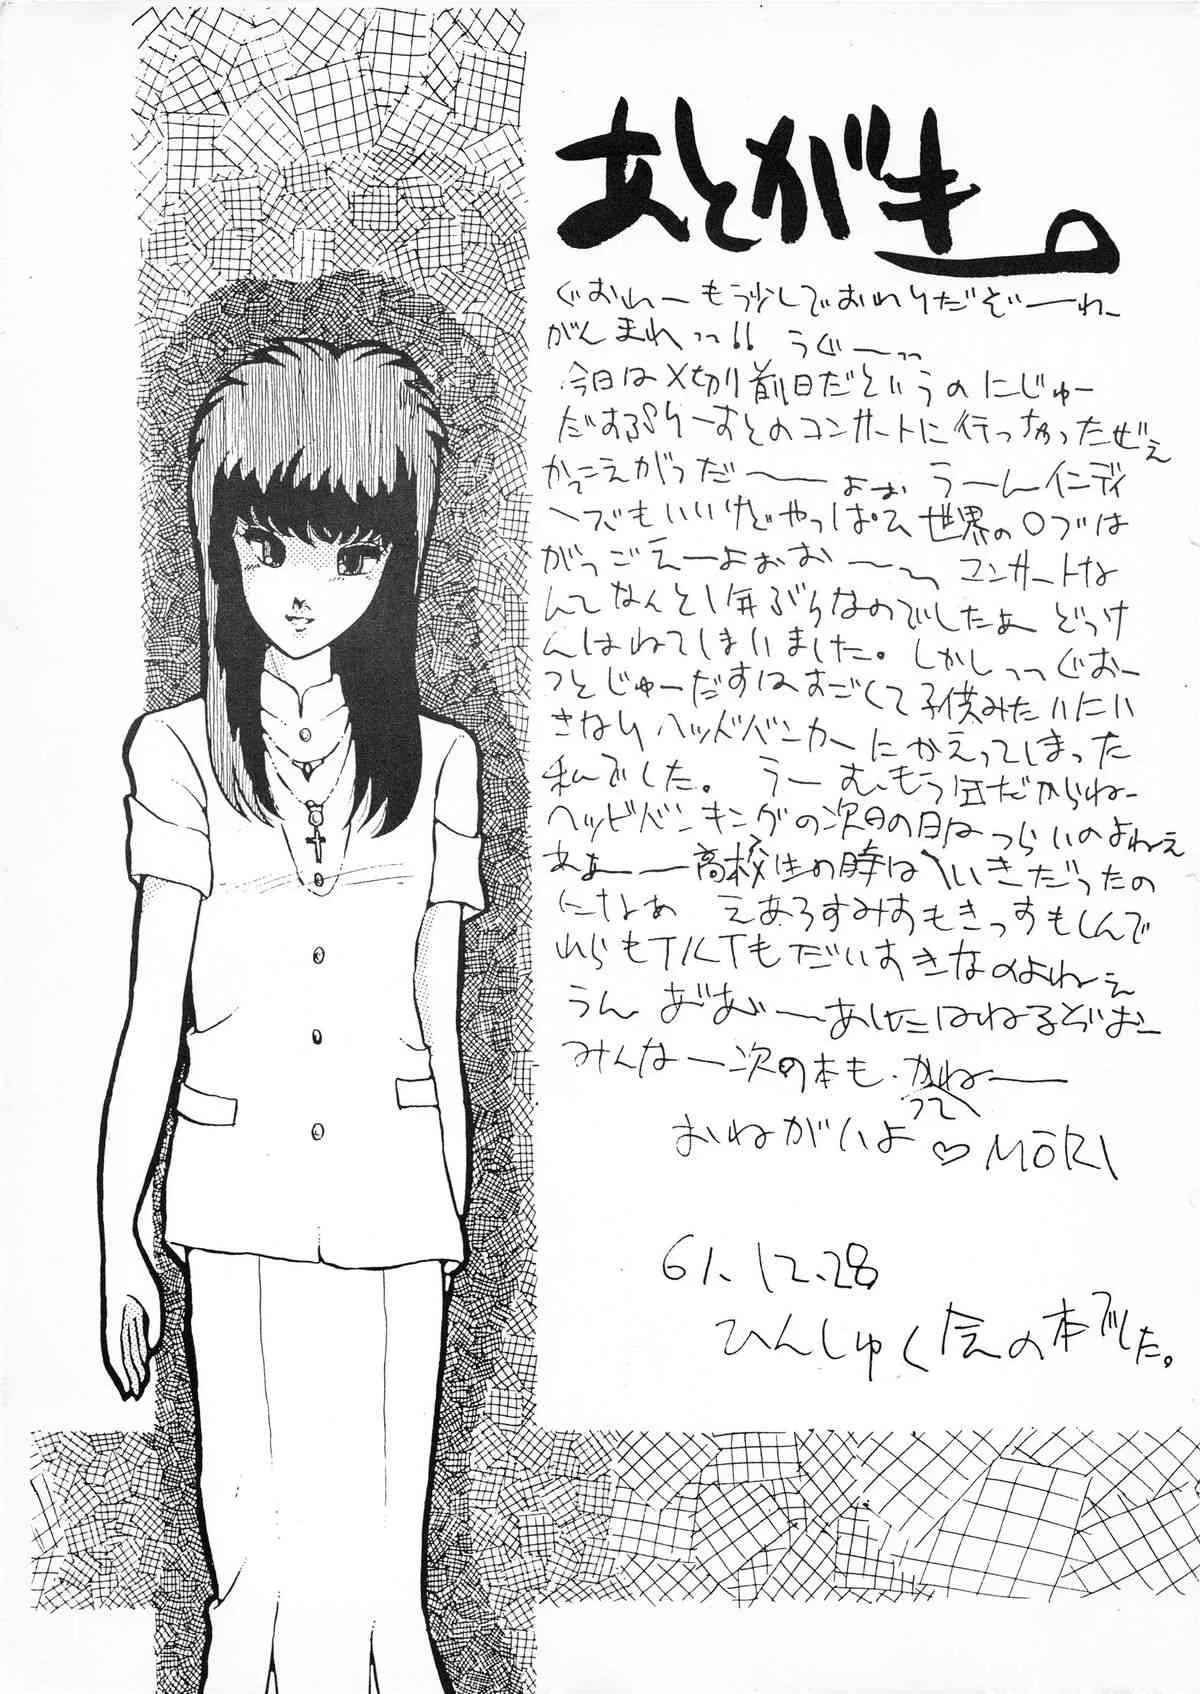 あとがき。
ぐおわーもう少しでおわりだぞーーわー
がんまれっっ!! うぐーーっっ
今日は〆切り前日だというのにじゅー
だすぷりーすとのコンサートに行っちゃったぜぇ
かっこえがっだ〜〜ょぉぉ うーんインディ
ーズでもいいけどやっぱし世界のロブは
がっごえーーよぉぉお〜〜っ コンサートな
んてなんと1年ぶりなのでしたぁ どっけ
んはねてしまいました。しかしっっぐおー
っとじゅーだすはすごくて子供みたいにい
きなりヘッドバンカーにかえってしまった
私でした。うーむ、もう だからねー
ヘッドバンキングの次の日はつらいのよねぇ
あぁーー高校生の時はへいきだったの
になぁ えあろすみすもきっすもしんで
れらもTケTもだいすきなのよねぇ
うん おおーーあしたはねるぞぉー
みんなー次の本も、かってねーー
おねがいよ♡MORI
61.12.28
ひんしゅく会の本でした。